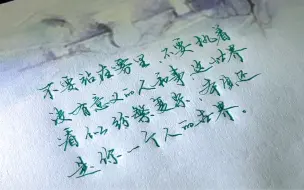 不要站在雾里 不要执着
没有意义的人和事 这世界
看似纷繁复杂 本质还
是你一个人的世界.